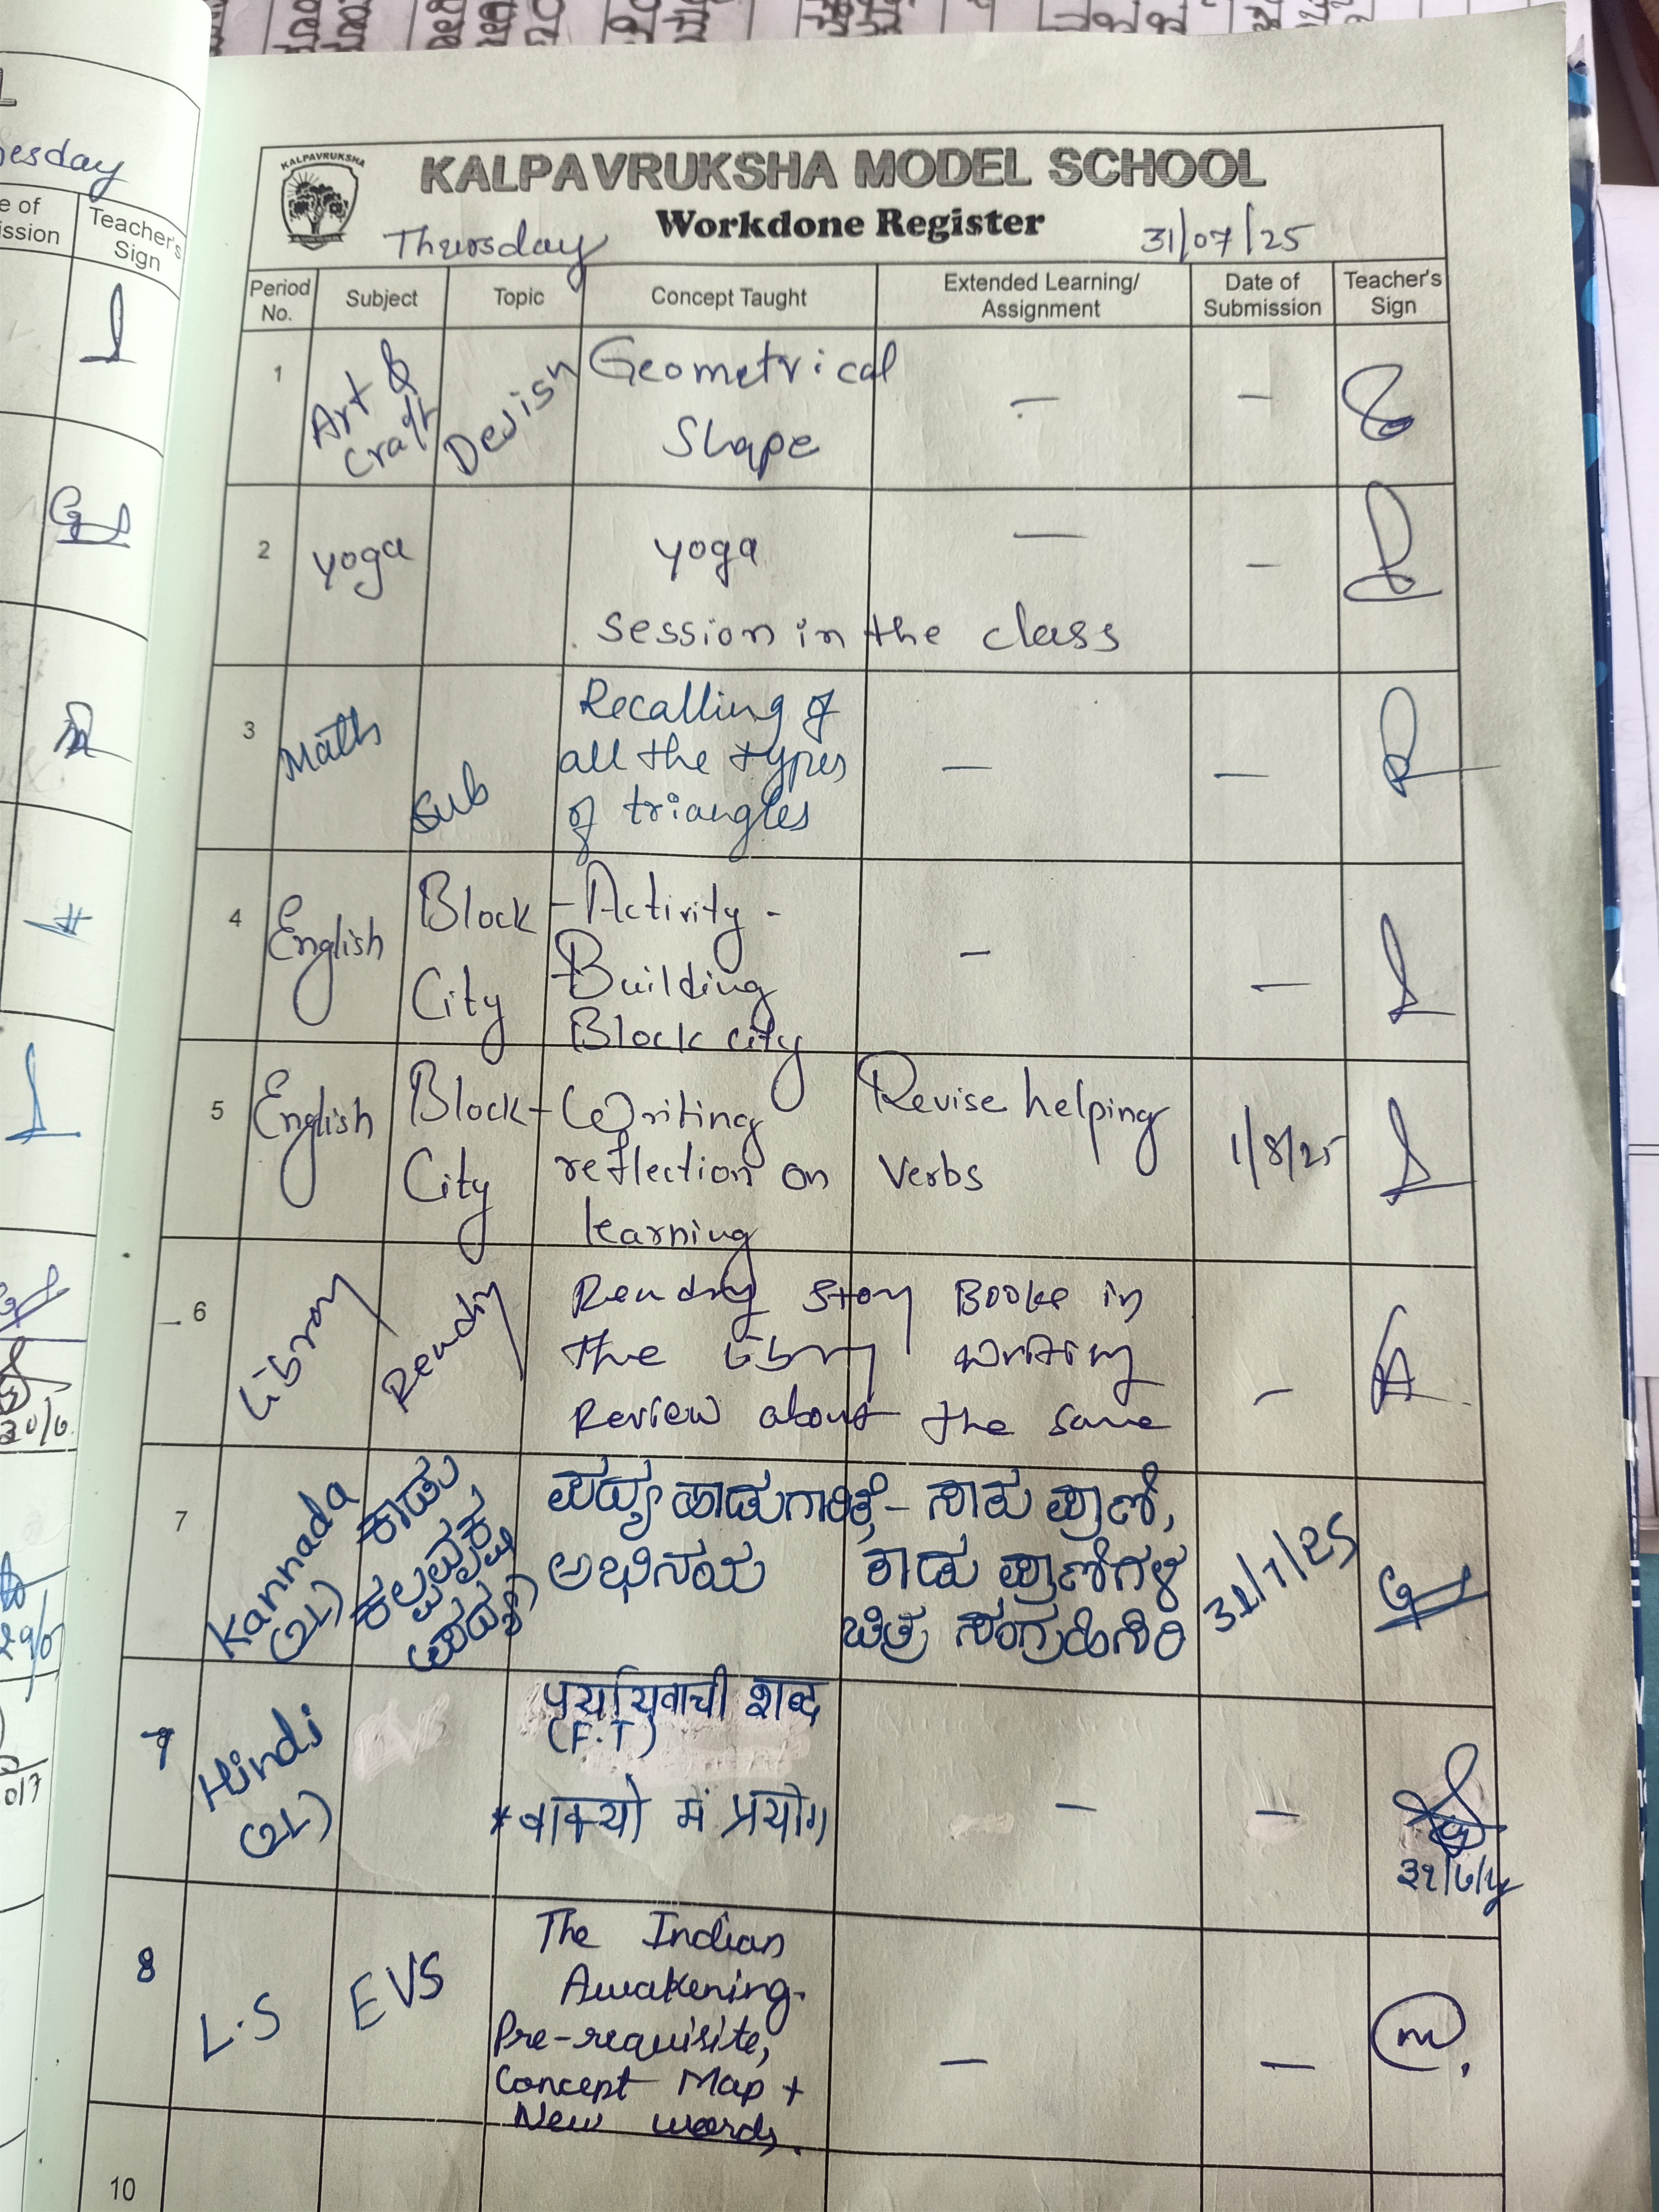 esday
e of
ission
Teacher's
Sign
KALPAVRUKSHA
KALPAVRUKSHA MODEL SCHOOL
Workdone Register
Thursday
31/07/25
Period No.
Subject
Topic
Concept Taught
Extended Learning/ Assignment
Date of Submission
Teacher's Sign
1
Art &
Craft
Geometrical
Shape
—
—
2
yoga
yoga
session in the class
—
—
3
Maths
Sub
Recalling of
all the types
of triangles
—
—
4
English
Block
City
- Activity -
Building
Block city
—
—
5
English
Block
City
- Writing
reflection on
learning
Revise helping
verbs
1/8/25
6
Library
Reading
Reading story Books in
the library writing
Review about the same
—
7
Kannada
(2L)
ಕಾಡು
(ಪದ್ಯ)
ಪದ್ಯ ಹಾಡುಗಾರಿಕೆ,
ಅಭಿನಯ
- ಸಾಕು ಪ್ರಾಣಿ,
ಕಾಡು ಪ್ರಾಣಿಗಳ
ಚಿತ್ರ ಸಂಗ್ರಹಿಸಿರಿ
31/7/25
7
Hindi
(2L)
पर्यायवाची शब्द
(F.T)
* वाक्यो में प्रयोग
—
—
8
L.S
EVS
The Indian
Awakening-
Pre-requisite,
Concept Map +
New words.
—
—
10